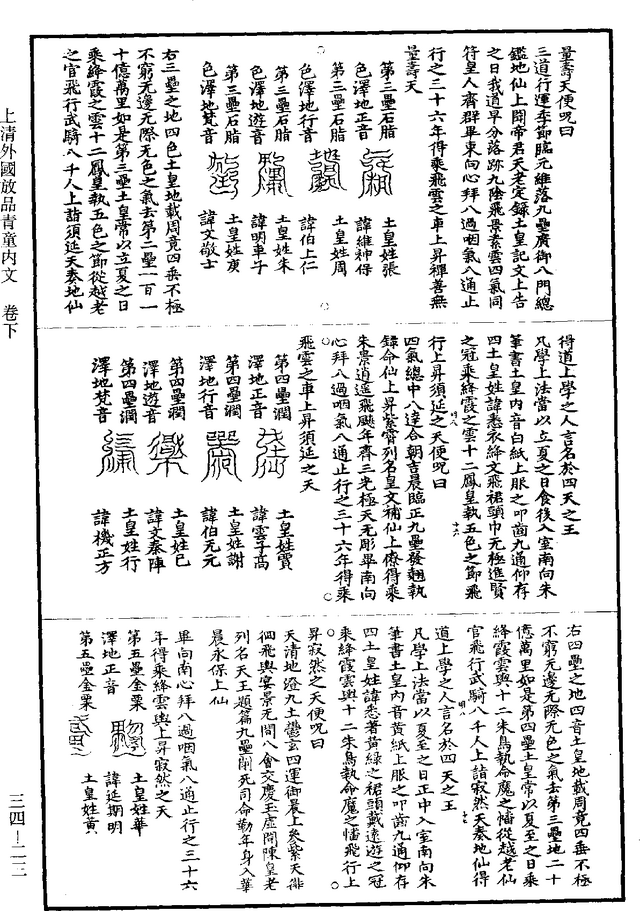 量壽天便呪曰
三道行運季節臨元維落九壘廣御八門總
鑑地仙上開帝君天老定錄土皇記文上告
之日我道早分落跡九陰飛景素雲四氣同
符皇人齊群畢東向心拜八過咽氣八通止
行之三十六年得乘飛雲之車上昇禪善無
量壽天
第三壘石脂 土皇姓張
色澤地正音 諱維神保
第三壘石脂 土皇姓周
色澤地行音 諱伯上仁
第三壘石脂 土皇姓朱
色澤地遊音 諱明車子
第三壘石脂 土皇姓庚
色澤地梵音 諱文敬士
右三壘之地四色土皇地載周竟四垂不極
不窮无邊无際无色之氣去第二壘一百一
十億萬里如是第三壘土皇常以立夏之日
乘絳霞之雲十二鳳皇執五色之節從越老
之官飛行武騎八千人上詣須延天奏地仙
得道上學之人言名於四天之王
凡學上法當以立夏之日食後入室南向朱
筆書土皇內音白紙上服之叩齒九通仰存
四土皇姓諱悉衣絳文飛裙頭巾无極進賢
之冠乘絳霞之雲十二鳳皇執五色之節飛
行上昇須延之天便呪曰
四氣總中八達合朝吉晨臨正九壘發翹執
錄命仙上昇紫霄列名皇文補仙上僚得乘
朱景逍遙飛飈年齊三光極天无彫畢南向
心拜八過咽氣八通止行之三十六年得乘
飛雲之車上昇須延之天
第四壘潤 土皇姓賈
澤地正音 諱雲子高
第四壘潤 土皇姓謝
澤地行音 諱伯元元
第四壘潤 土皇姓巳
澤地遊音 諱文泰陣
第四壘潤 土皇姓行
澤地梵音 諱機正方
右四壘之地四音土皇地載周竟四垂不極
不窮无邊无際无色之氣去第三壘地二十
億萬里如是第四壘土皇常以夏至之日乘
絳霞雲輿十二朱鳥執命魔之幡從越老仙
官飛行武騎八千人上詣寂然天奏地仙得
道上學之人言名於四天之王
凡學上法當以夏至之日正中入室南向朱
筆書土皇內音黃紙上服之叩齒九通仰存
四土皇姓諱悉著黃綠之裙頭戴遠遊之冠
乘絳霞雲輿十二朱鳥執命魔之幡飛行上
昇寂然之天便呪曰
天清地澄九土鬱玄四運御晨上炎紫天徘
徊飛輿宴景无間八會交慶玉虛問陳皇老
列名天王題篇九壘閉死司命勒年身入華
晨永保上仙
畢向南心拜八過咽氣八通止行之三十六
年得乘絳雲輿上昇寂然之天
第五壘金粟 土皇姓華
澤地正音 諱延期明
第五壘金粟 土皇姓黃
上清外國放品青童內文 卷下
三四—二二